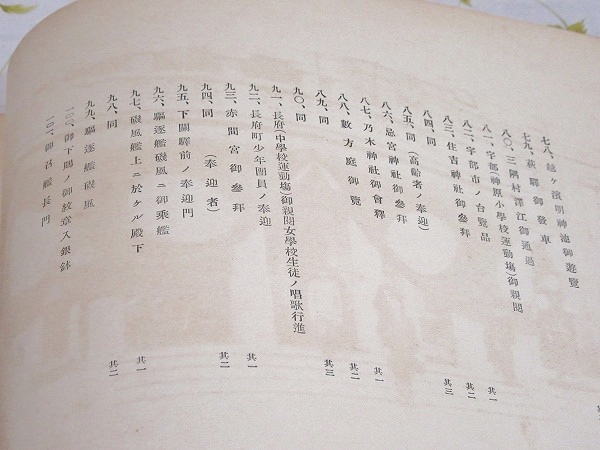 七八、越ヶ濱明神池御遊覽
七九、萩驛御發車
八〇、三隅村澤江御通過
八一、宇部(神原小學校運動場)御親閲 其一
八二、宇部市ノ台覽品 其二
八三、住吉神社御參拜 其三
八四、同
八五、同(高齢者ノ奉迎)
八六、忌宮神社御參拜 其一
八七、乃木神社御會釋 其二
八八、數方庭御覽 其三
八九、同
九〇、同
九一、長府(中學校運動場)御親閲女學校生徒ノ唱歌行進
九二、長府町少年團員ノ奉迎 其一
九三、赤間宮御參拜 其二
九四、同(奉迎者)
九五、下關驛前ノ奉迎門
九六、驅逐艦磯風ニ御乘艦 其一
九七、磯風艦上ニ於ケル殿下 其二
九八、同
九九、驅逐艦磯風
一〇〇、御下賜ノ御紋章入銀鉢
一〇一、御召艦長門